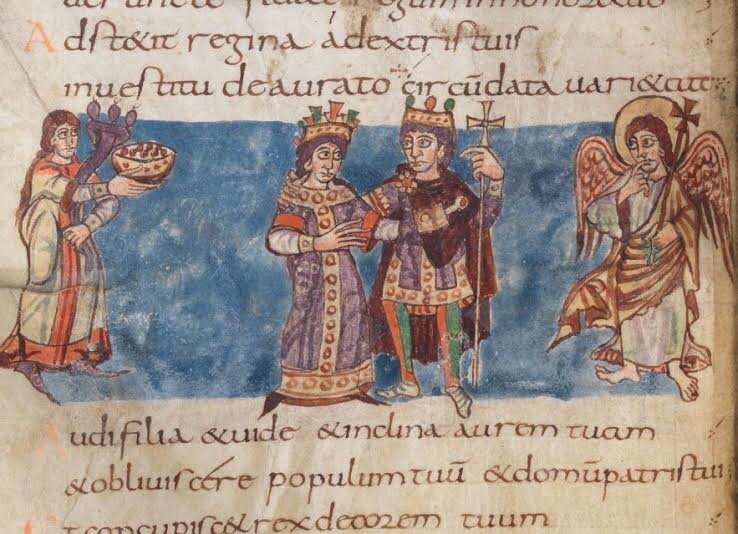 filiae regum inhonore tuo
Adst&it regina adextristuis
inuestitu deaurato circūdata uari&ate
Audifilia &uide &inclina aurem tuam
&obliuiscere populum tuū &domūpatristui;
&concupisc& rex decorem tuum